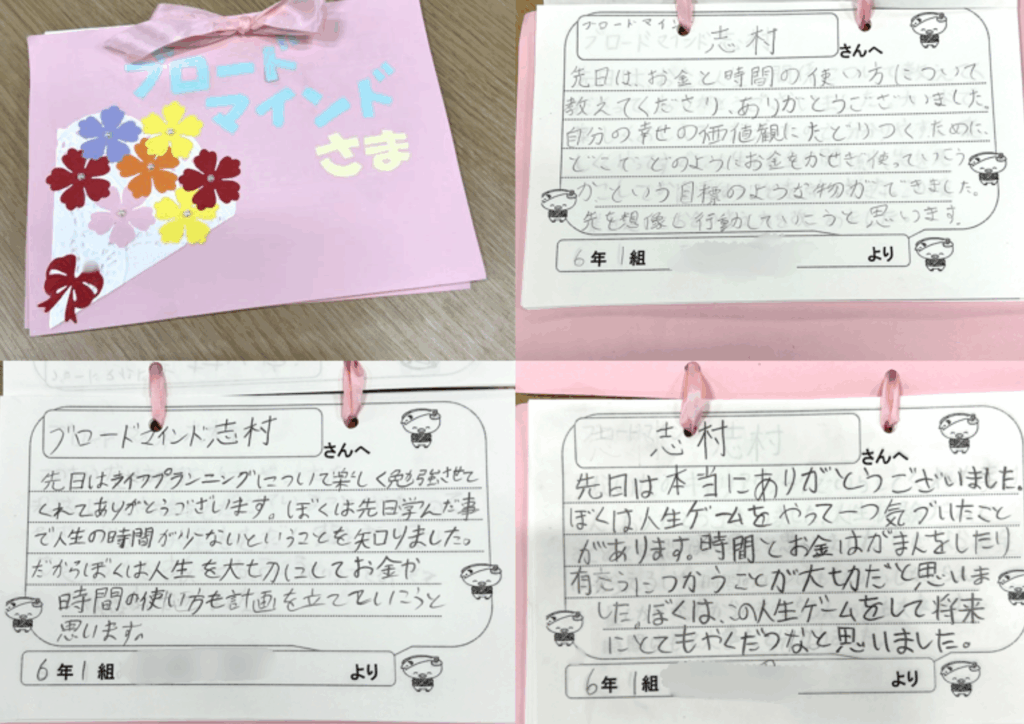 ブロード
マインド
さま
ブロードマインド志村
さんへ
先日は、お金と時間の使い方について
教えてくださり、ありがとうございました。
自分の幸せの価値観にたどりつくために、
どこでどのようにお金をかせぎ使っていこう
かという目標のような物ができました。
先を想像し行動していこうと思います。
6年1組
より
ブロードマインド志村
さんへ
先日はライフプランニングについて楽しく勉強させて
くれてありがとうございます。ぼくは先日学んだ事
で人生の時間が少ないということを知りました。
だからぼくは人生を大切にしてお金や
時間の使い方も計画を立てていこうと
思います。
6年1組
より
志村
さんへ
先日は本当にありがとうございました。
ぼくは人生ゲームをやって一つ気づいたこと
があります。時間とお金はがまんをしたり
有こうにつかうことが大切だと思いま
した。ぼくは、この人生ゲームをして将来
にとてもやくだつなと思いました。
6年1組
より